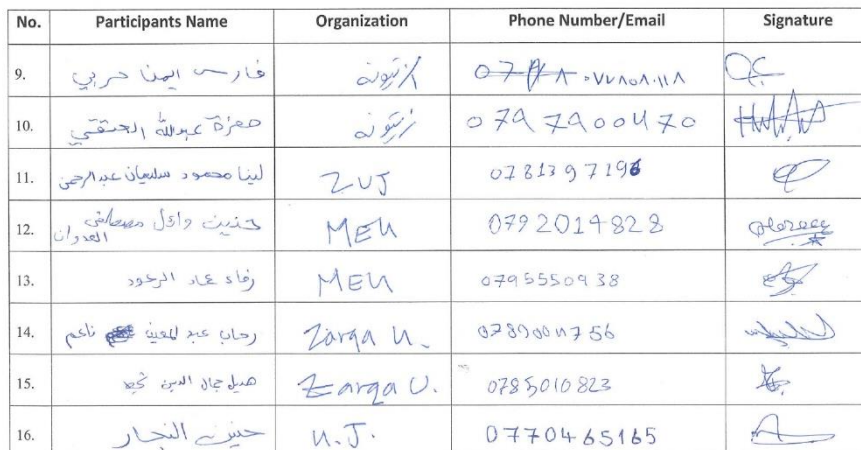 No. Participants Name Organization Phone Number/Email Signature
9. فارس ايمن حربي زيتونه ٠٧٧٨٥٨٠١١٨
10. حمزة عبدالله زيتونه 0797900470
11. لينا محمود سليمان عبدالرحمن ZUJ 0781397196
12. حنين وائل مصطفى العدوان MEU 0792014828
13. رفاء عماد الرعود MEU 0795550938
14. رحاب عبد المعين ناعم Zarqa U.
15. هديل جمال الدين Zarqa U. 0785010823
16. حنين النجار U.J. 0770465165